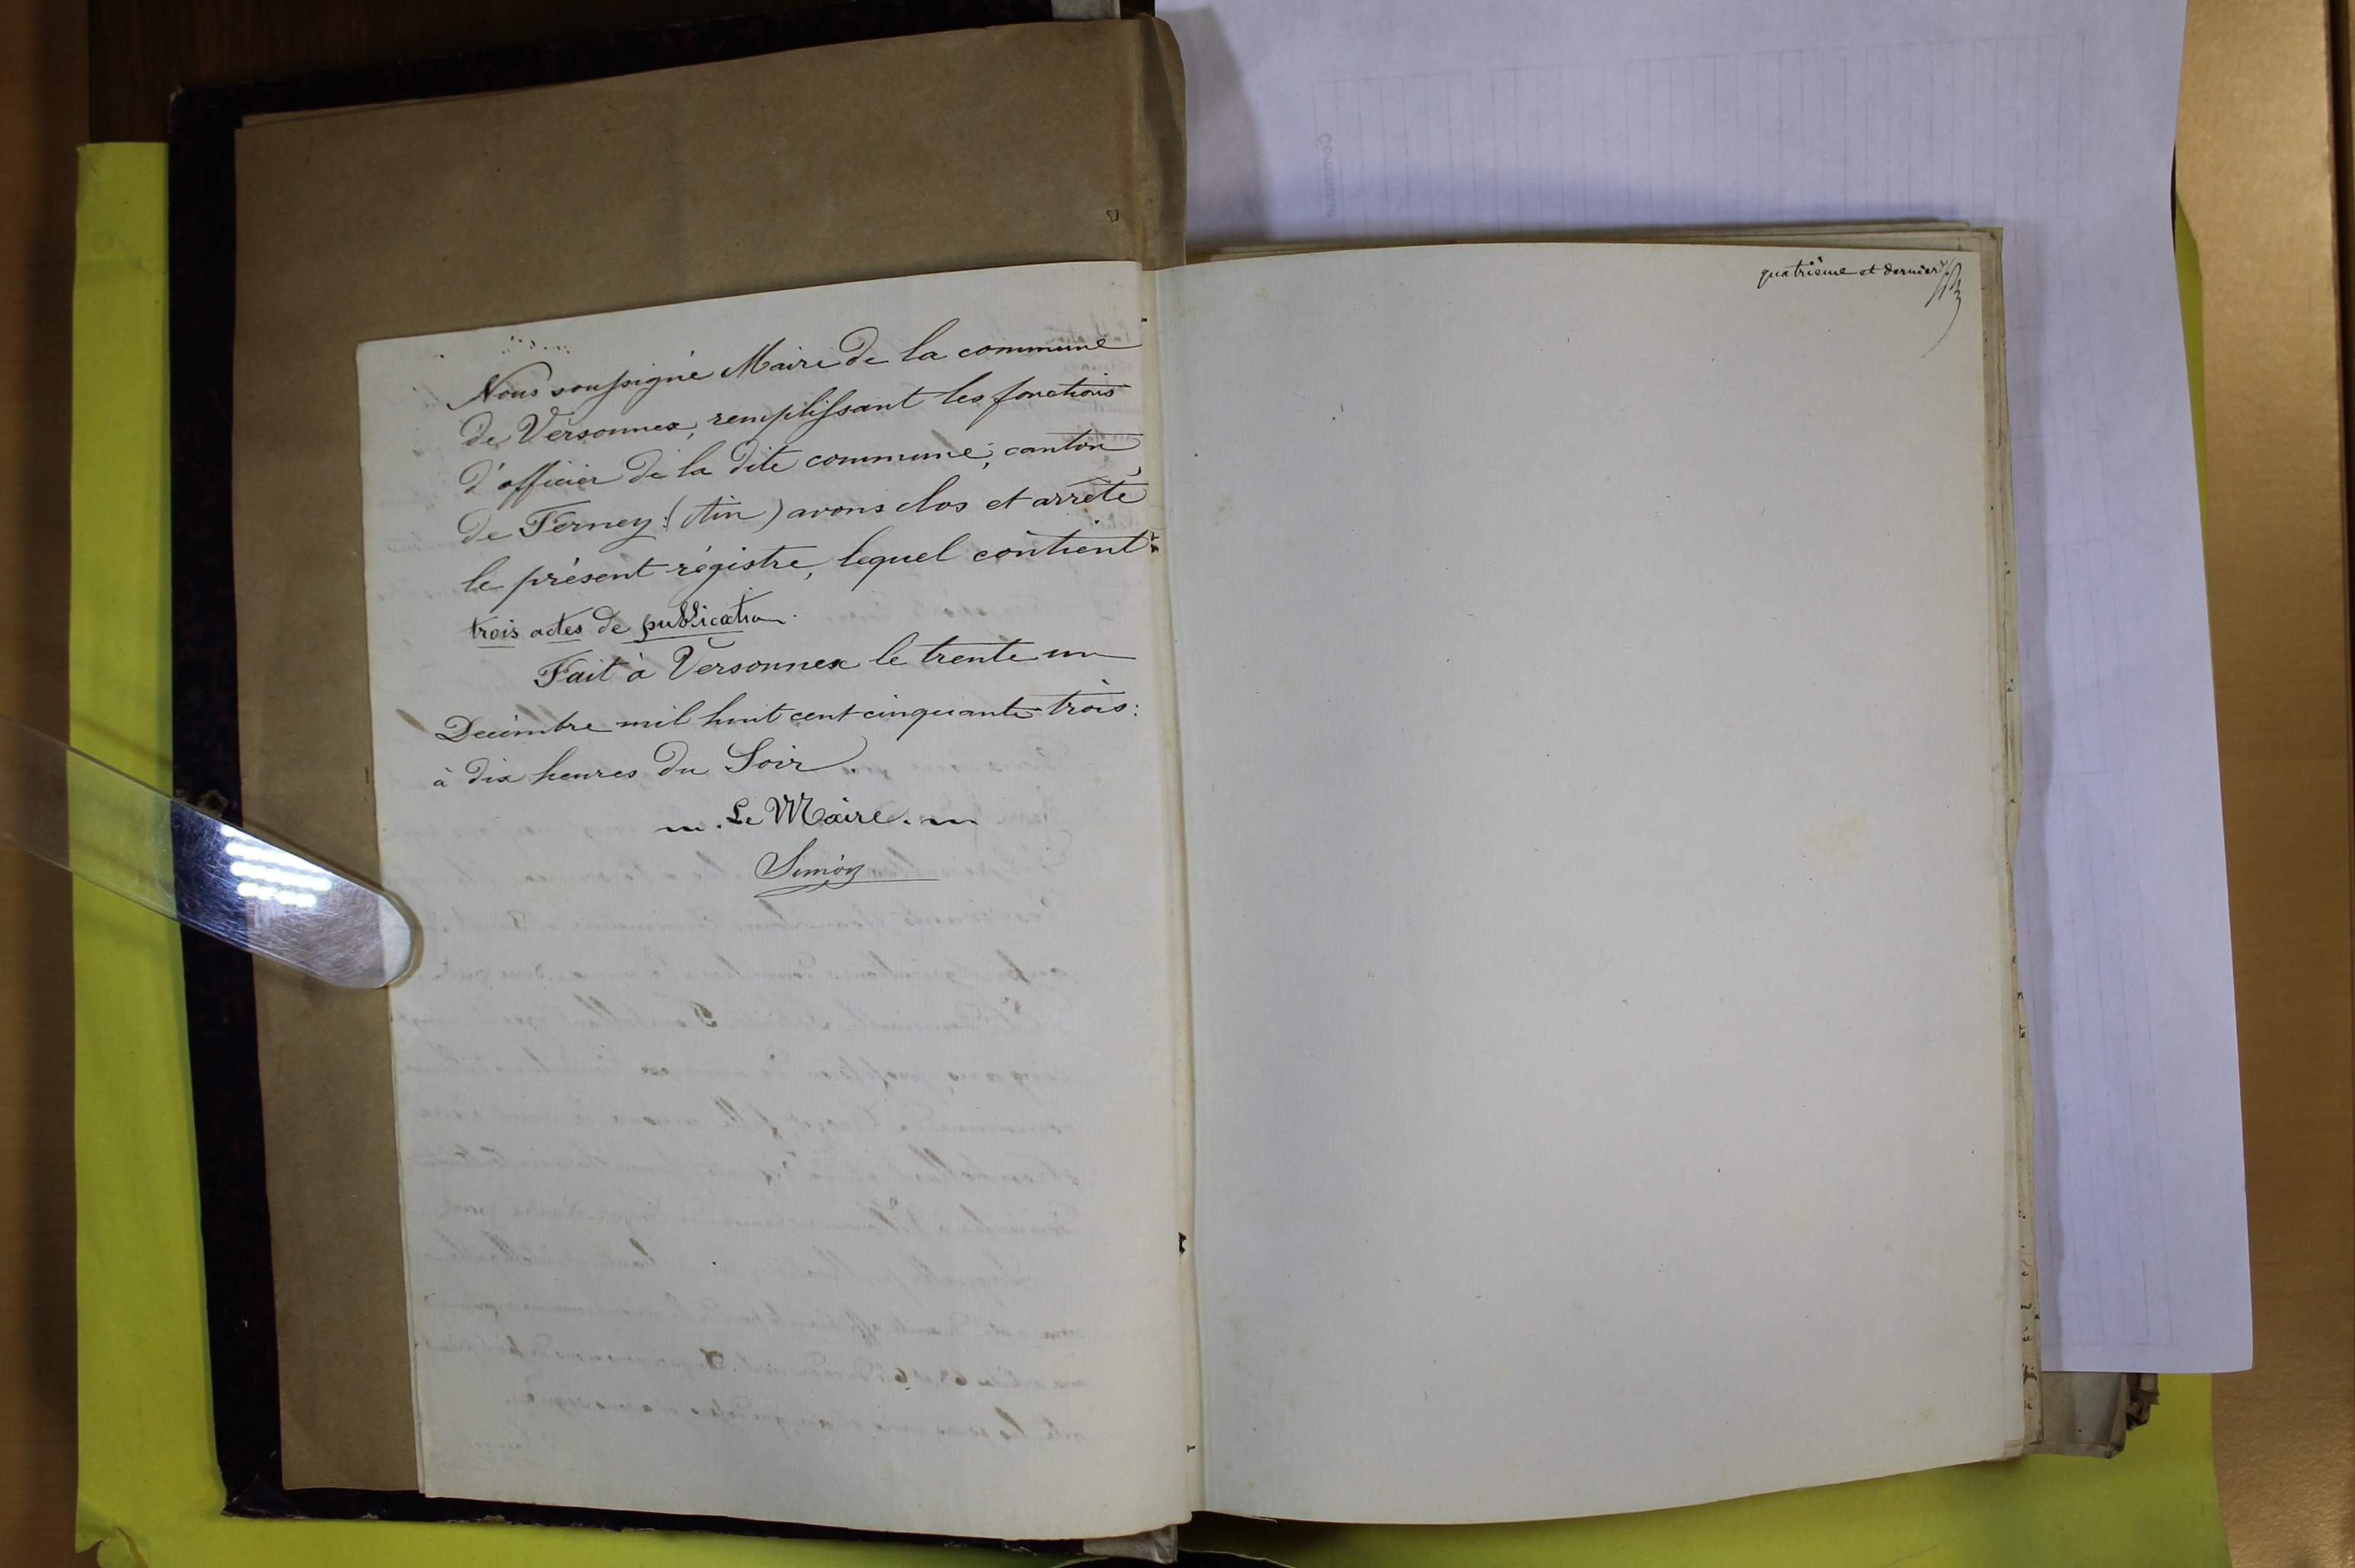 Nous soussigné Maire de la commune
de Versonnex, remplissant les fonctions
d'officier de la dite commune, canton
de Ferney (Ain) avons clos et arrêté
le présent régistre, lequel contient
trois actes de publication.
Fait à Versonnex le trente un
Decembre mil huit cent cinquante trois:
à dix heures du Soir.
Le Maire.
quatrième et dernier